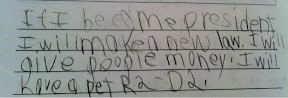 If I become president
I will make a new law. I will
give people money. I will
have a pet R2-D2.